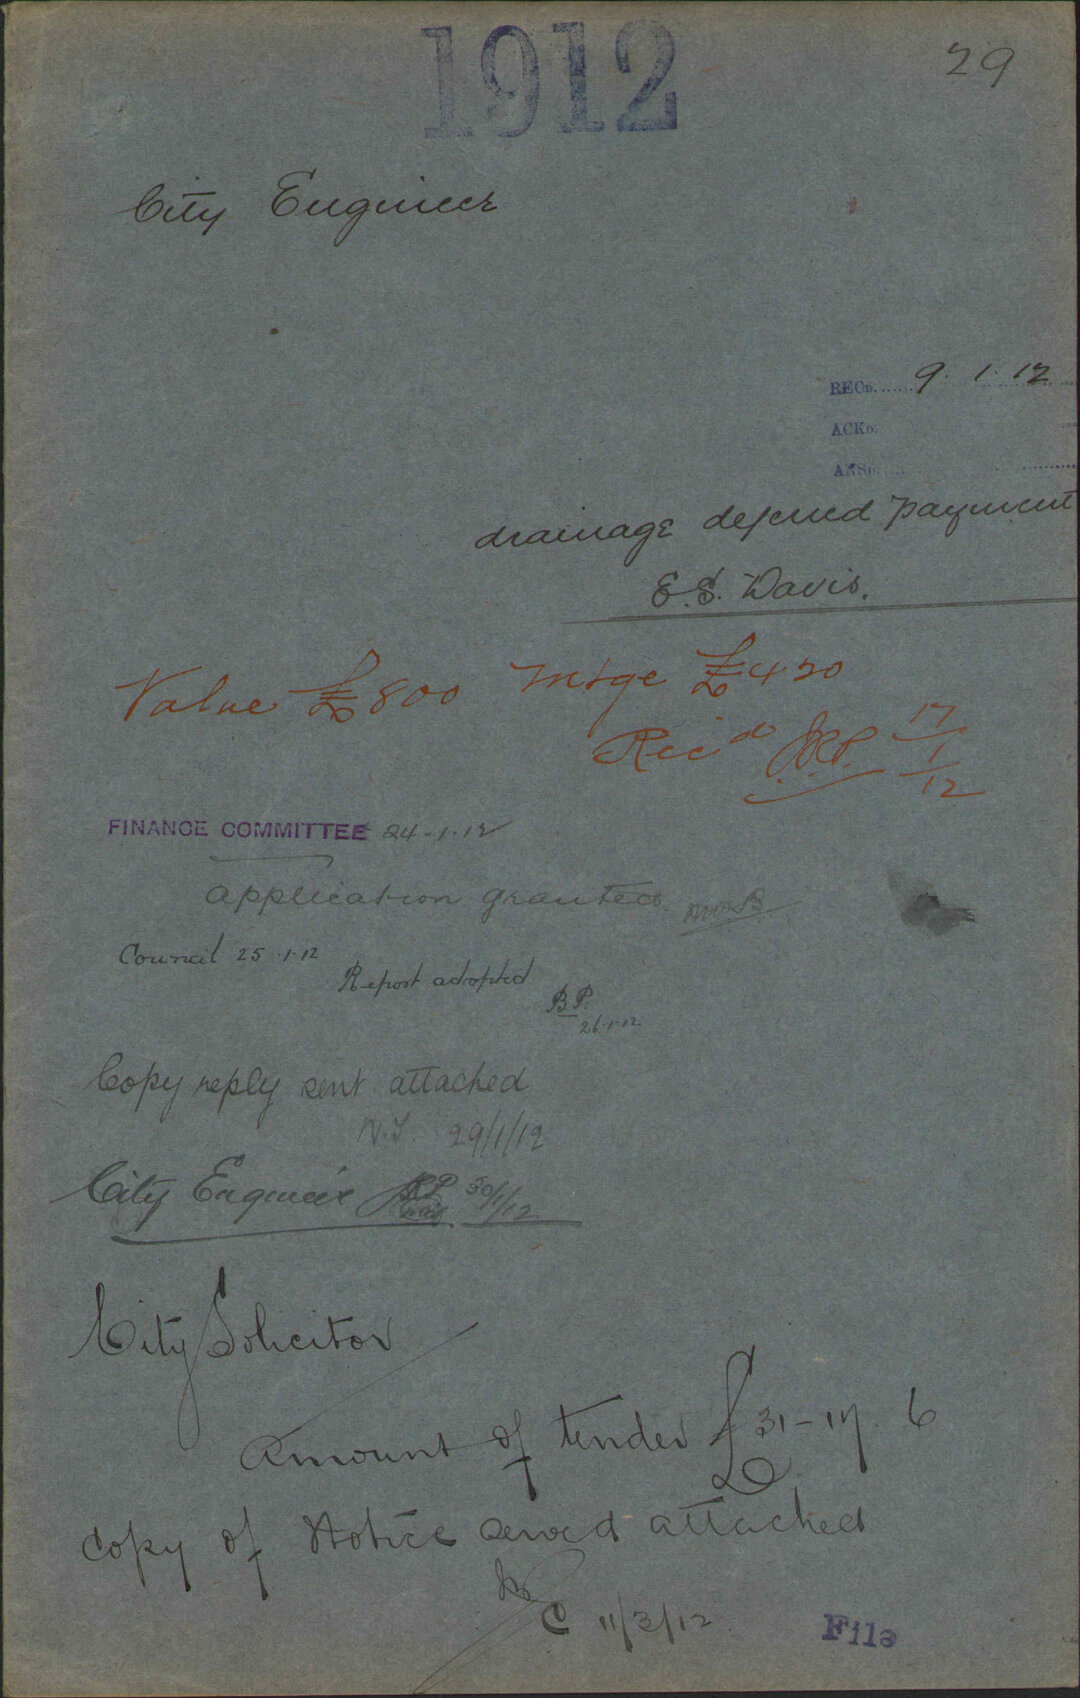 1912
29
City Engineer
RECD. 9. 1. 12
ACKD.
ANSD.
drainage deferred payment
E. S. Davis.
Value £800 Mtge £420
Rec'd J.R.P. 17/1/12
FINANCE COMMITTEE 24-1-12
application granted
Council 25.1.12
Report adopted
B.P.
26.1.12
Copy reply sent attached
29/1/12
City Engineer 30/1/12
City Solicitor
Amount of tender £31-17. 6
Copy of Notice served attached
11/3/12
File